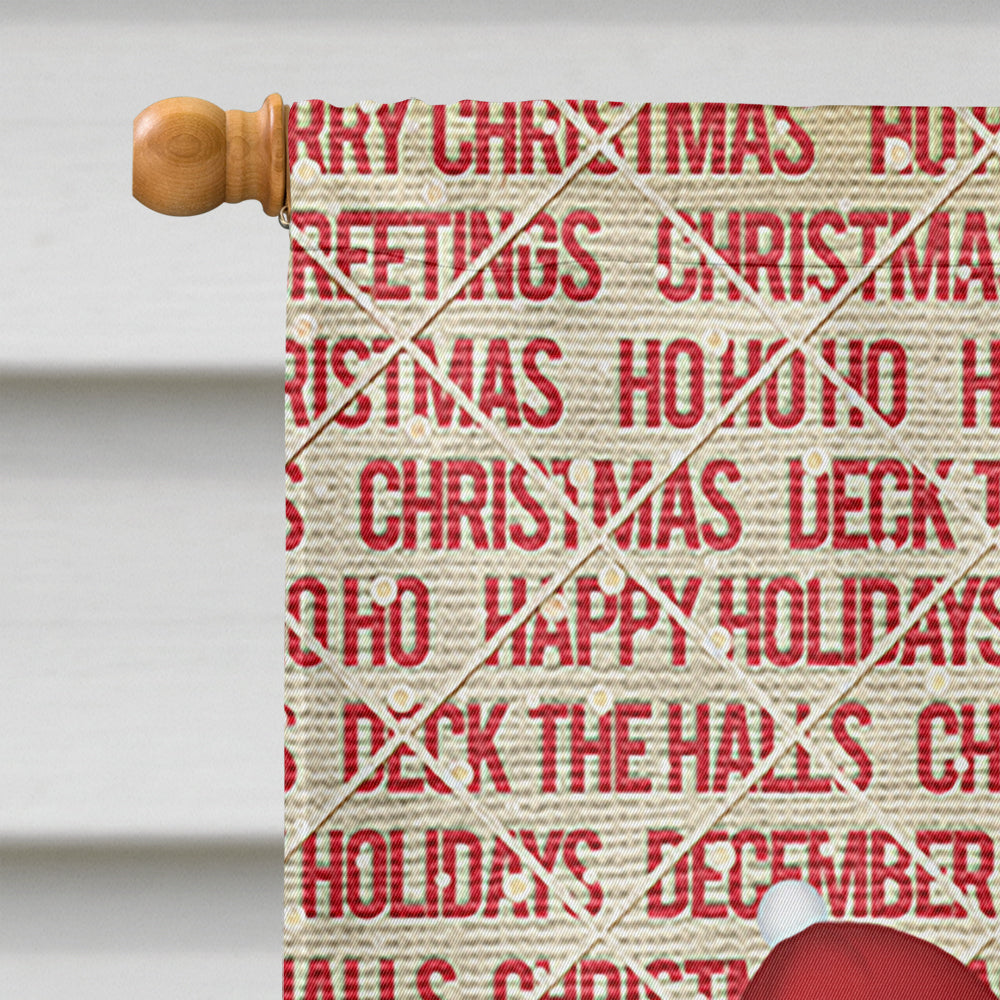 RRY CHRISTMAS HO H
REETINGS CHRISTMA
RISTMAS HO HO HO H
S CHRISTMAS DECK T
O HO HAPPY HOLIDAYS
S DECK THE HALLS CH
HOLIDAYS DECEMBER
ALLS CHRISTM